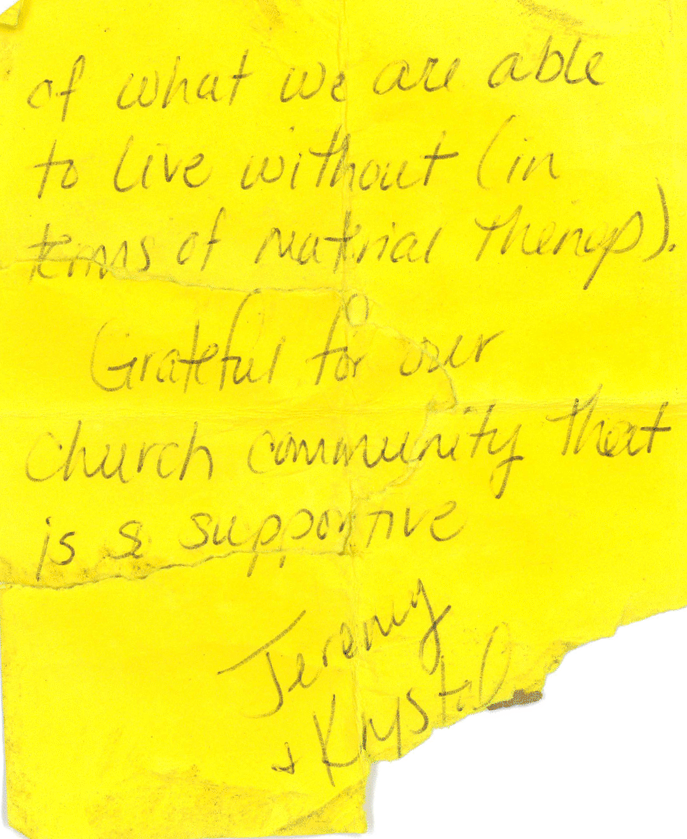 of what we are able
to live without (in
terms of material things).
Grateful for our
church community that
is so supportive
Jeremy
+ Krystal